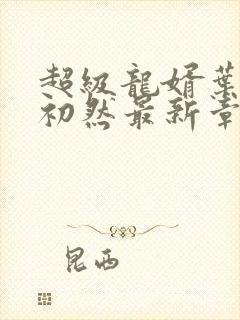 超级龍婿葉
初然最新章
昆西